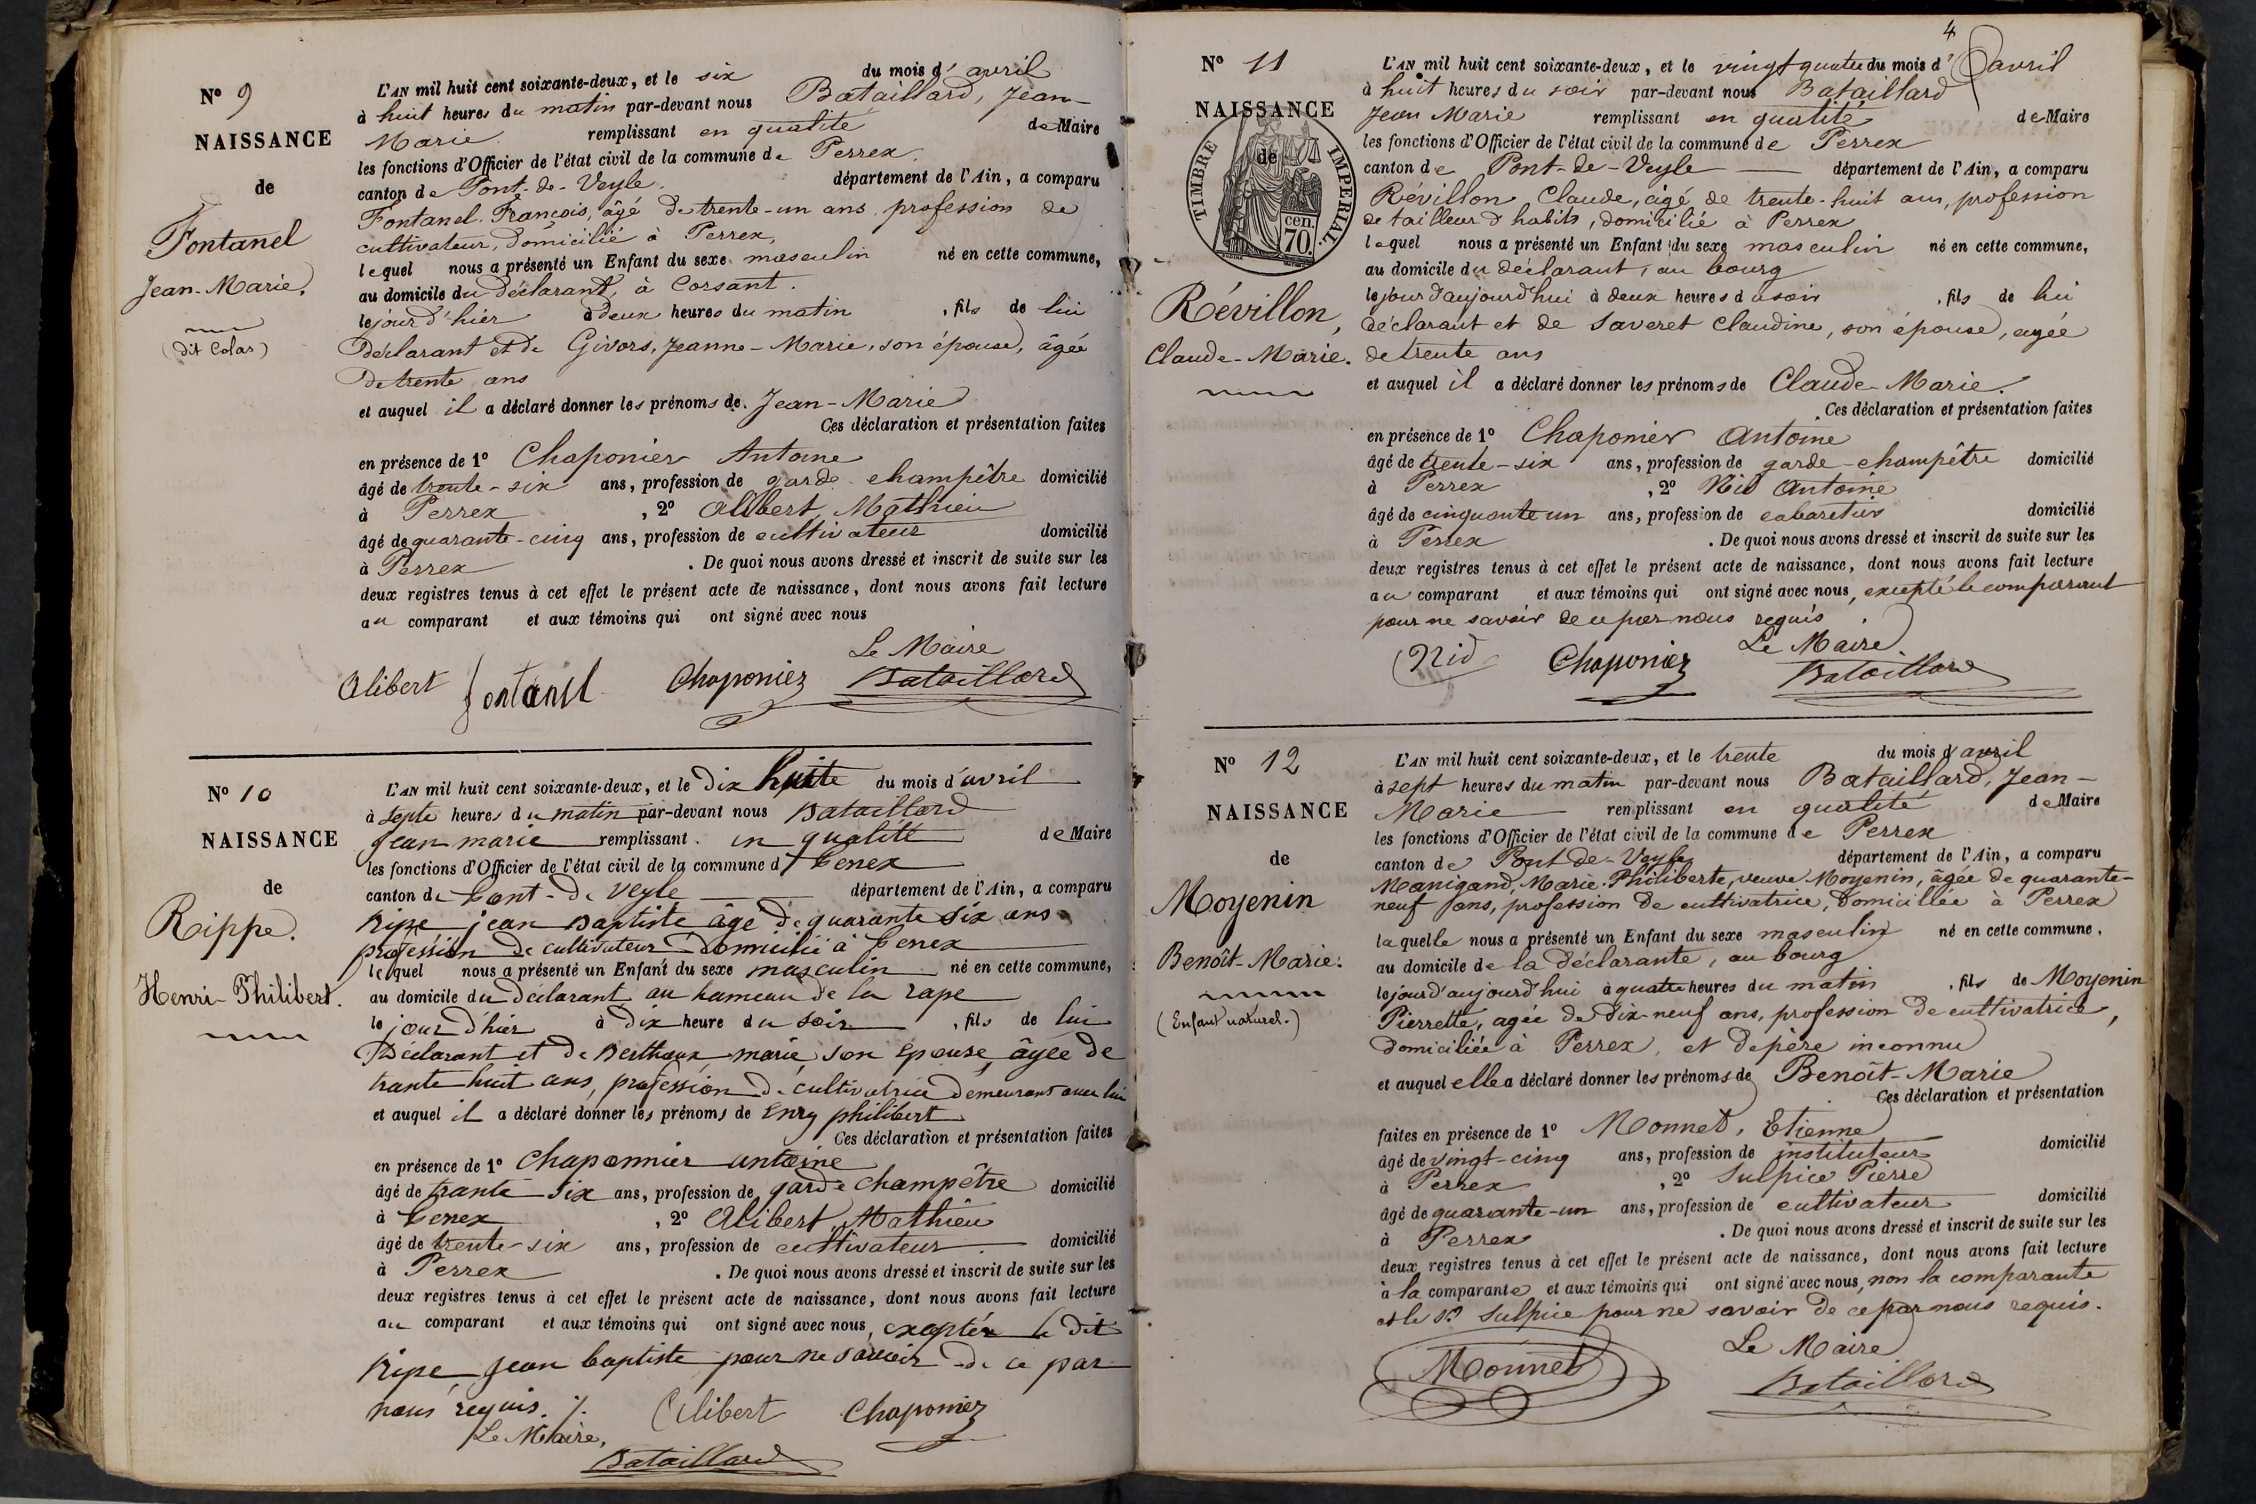 N° 9
NAISSANCE
de
Fontanel
Jean-Marie.
(dit Colas)
L'AN mil huit cent soixante-deux, et le six du mois d'avril
à huit heures du matin par-devant nous Bataillard, Jean-
Marie remplissant en qualité de Maire
les fonctions d'Officier de l'état civil de la commune de Perrex.
canton de Pont-de-Veyle. département de l'Ain, a comparu
Fontanel François, âgé de trente-un ans, profession de
cultivateur, domicilié à Perrex,
lequel nous a présenté un Enfant du sexe masculin né en cette commune,
au domicile du déclarant, à Corsant.
le jour d'hier à deux heures du matin, fils de lui
déclarant et de Givors, Jeanne-Marie, son épouse, âgée
de trente ans
et auquel il a déclaré donner les prénoms de Jean-Marie
Ces déclaration et présentation faites
en présence de 1° Chaponier Antoine
âgé de trente-six ans, profession de garde champêtre domicilié
à Perrex, 2° Alibert, Mathieu
âgé de quarante-cinq ans, profession de cultivateur domicilié
à Perrex. De quoi nous avons dressé et inscrit de suite sur les
deux registres tenus à cet effet le présent acte de naissance, dont nous avons fait lecture
au comparant et aux témoins qui ont signé avec nous
Le Maire
Alibert fontanel Chaponier Bataillard
N° 10
NAISSANCE
de
Rippe.
Henri-Philibert.
L'AN mil huit cent soixante-deux, et le dix huite du mois d'avril
à septe heures du matin par-devant nous Bataillard
jean marie remplissant en qualité de Maire
les fonctions d'Officier de l'état civil de la commune d
canton de Pont-de veyle département de l'Ain, a comparu
Ripe, jean Baptiste âgé de quarante six ans
profession de cultivateur domicilié à
lequel nous a présenté un Enfant du sexe masculin né en cette commune,
au domicile du déclarant au hameau de la rape
le jour d'hier à dix heure du soir, fils de lui
Déclarant et de Berthoux marie, son Epouse, âgée de
trante huit ans, profession de cultivatrice demeurant avec lui
et auquel il a déclaré donner les prénoms de Enry philibert
Ces déclaration et présentation faites
en présence de 1° Chaponnier antoine
âgé de trante six ans, profession de garde champêtre domicilié
à, 2° Alibert, Mathieu
âgé de trente-six ans, profession de cultivateur. domicilié
à Perrex. De quoi nous avons dressé et inscrit de suite sur les
deux registres tenus à cet effet le présent acte de naissance, dont nous avons fait lecture
au comparant et aux témoins qui ont signé avec nous, le dit
Ripe, jean baptiste pour ne savoir de ce par
nous requis. Alibert Chaponier
Le Maire,
Bataillard
4
N° 11
NAISSANCE
de
TIMBRE IMPERIAL.
cen.
70.
Révillon,
Claude-Marie.
L'AN mil huit cent soixante-deux, et le vingt quatre du mois d'avril
à huit heures du soir par-devant nous Bataillard
Jean Marie remplissant en qualité de Maire
les fonctions d'Officier de l'état civil de la commune de Perrex
canton de Pont-de-Veyle département de l'Ain, a comparu
Révillon Claude, âgé de trente-huit ans, profession
de tailleur d'habits, domicilié à Perrex
lequel nous a présenté un Enfant du sexe masculin né en cette commune,
au domicile du déclarant, au bourg
le jour d'aujourd'hui à deux heures du soir, fils de lui
déclarant et de Saveret Claudine, son épouse, agée
de trente ans
et auquel il a déclaré donner les prénoms de Claude-Marie.
Ces déclaration et présentation faites
en présence de 1° Chaponier Antoine
âgé de trente-six ans, profession de garde-champêtre domicilié
à Perrex, 2° Nid Antoine
âgé de cinquante un ans, profession de cabaretier domicilié
à Perrex. De quoi nous avons dressé et inscrit de suite sur les
deux registres tenus à cet effet le présent acte de naissance, dont nous avons fait lecture
au comparant et aux témoins qui ont signé avec nous, excepté le comparant
pour ne savoir de ce par nous requis
Le Maire
Nid Chaponier Bataillard
N° 12
NAISSANCE
de
Moyenin
Benoît-Marie.
(Enfant naturel.)
L'AN mil huit cent soixante-deux, et le trente du mois d'avril
à sept heures du matin par-devant nous Bataillard, Jean-
Marie remplissant en qualité de Maire
les fonctions d'Officier de l'état civil de la commune de Perrex
canton de Pont-de-Veyle département de l'Ain, a comparu
Manigand, Marie-Philiberte, veuve Moyenin, âgée de quarante-
neuf ans, profession de cultivatrice, domiciliée à Perrex
laquelle nous a présenté un Enfant du sexe masculin né en cette commune,
au domicile de la déclarante, au bourg
le jour d'aujourd'hui à quatre heures du matin, fils de Moyenin
Pierrette, agée de dix-neuf ans, profession de cultivatrice,
domiciliée à Perrex, et de père inconnu
et auquel elle a déclaré donner les prénoms de Benoît-Marie
Ces déclaration et présentation
faites en présence de 1° Monnet, Etienne
âgé de vingt-cinq ans, profession de instituteur domicilié
à Perrex, 2° Sulpice Pierre
âgé de quarante-un ans, profession de cultivateur domicilié
à Perrex. De quoi nous avons dressé et inscrit de suite sur les
deux registres tenus à cet effet le présent acte de naissance, dont nous avons fait lecture
à la comparante et aux témoins qui ont signé avec nous, non la comparante
et le Sr Sulpice pour ne savoir de ce par nous requis.
Le Maire
Monnet Bataillard